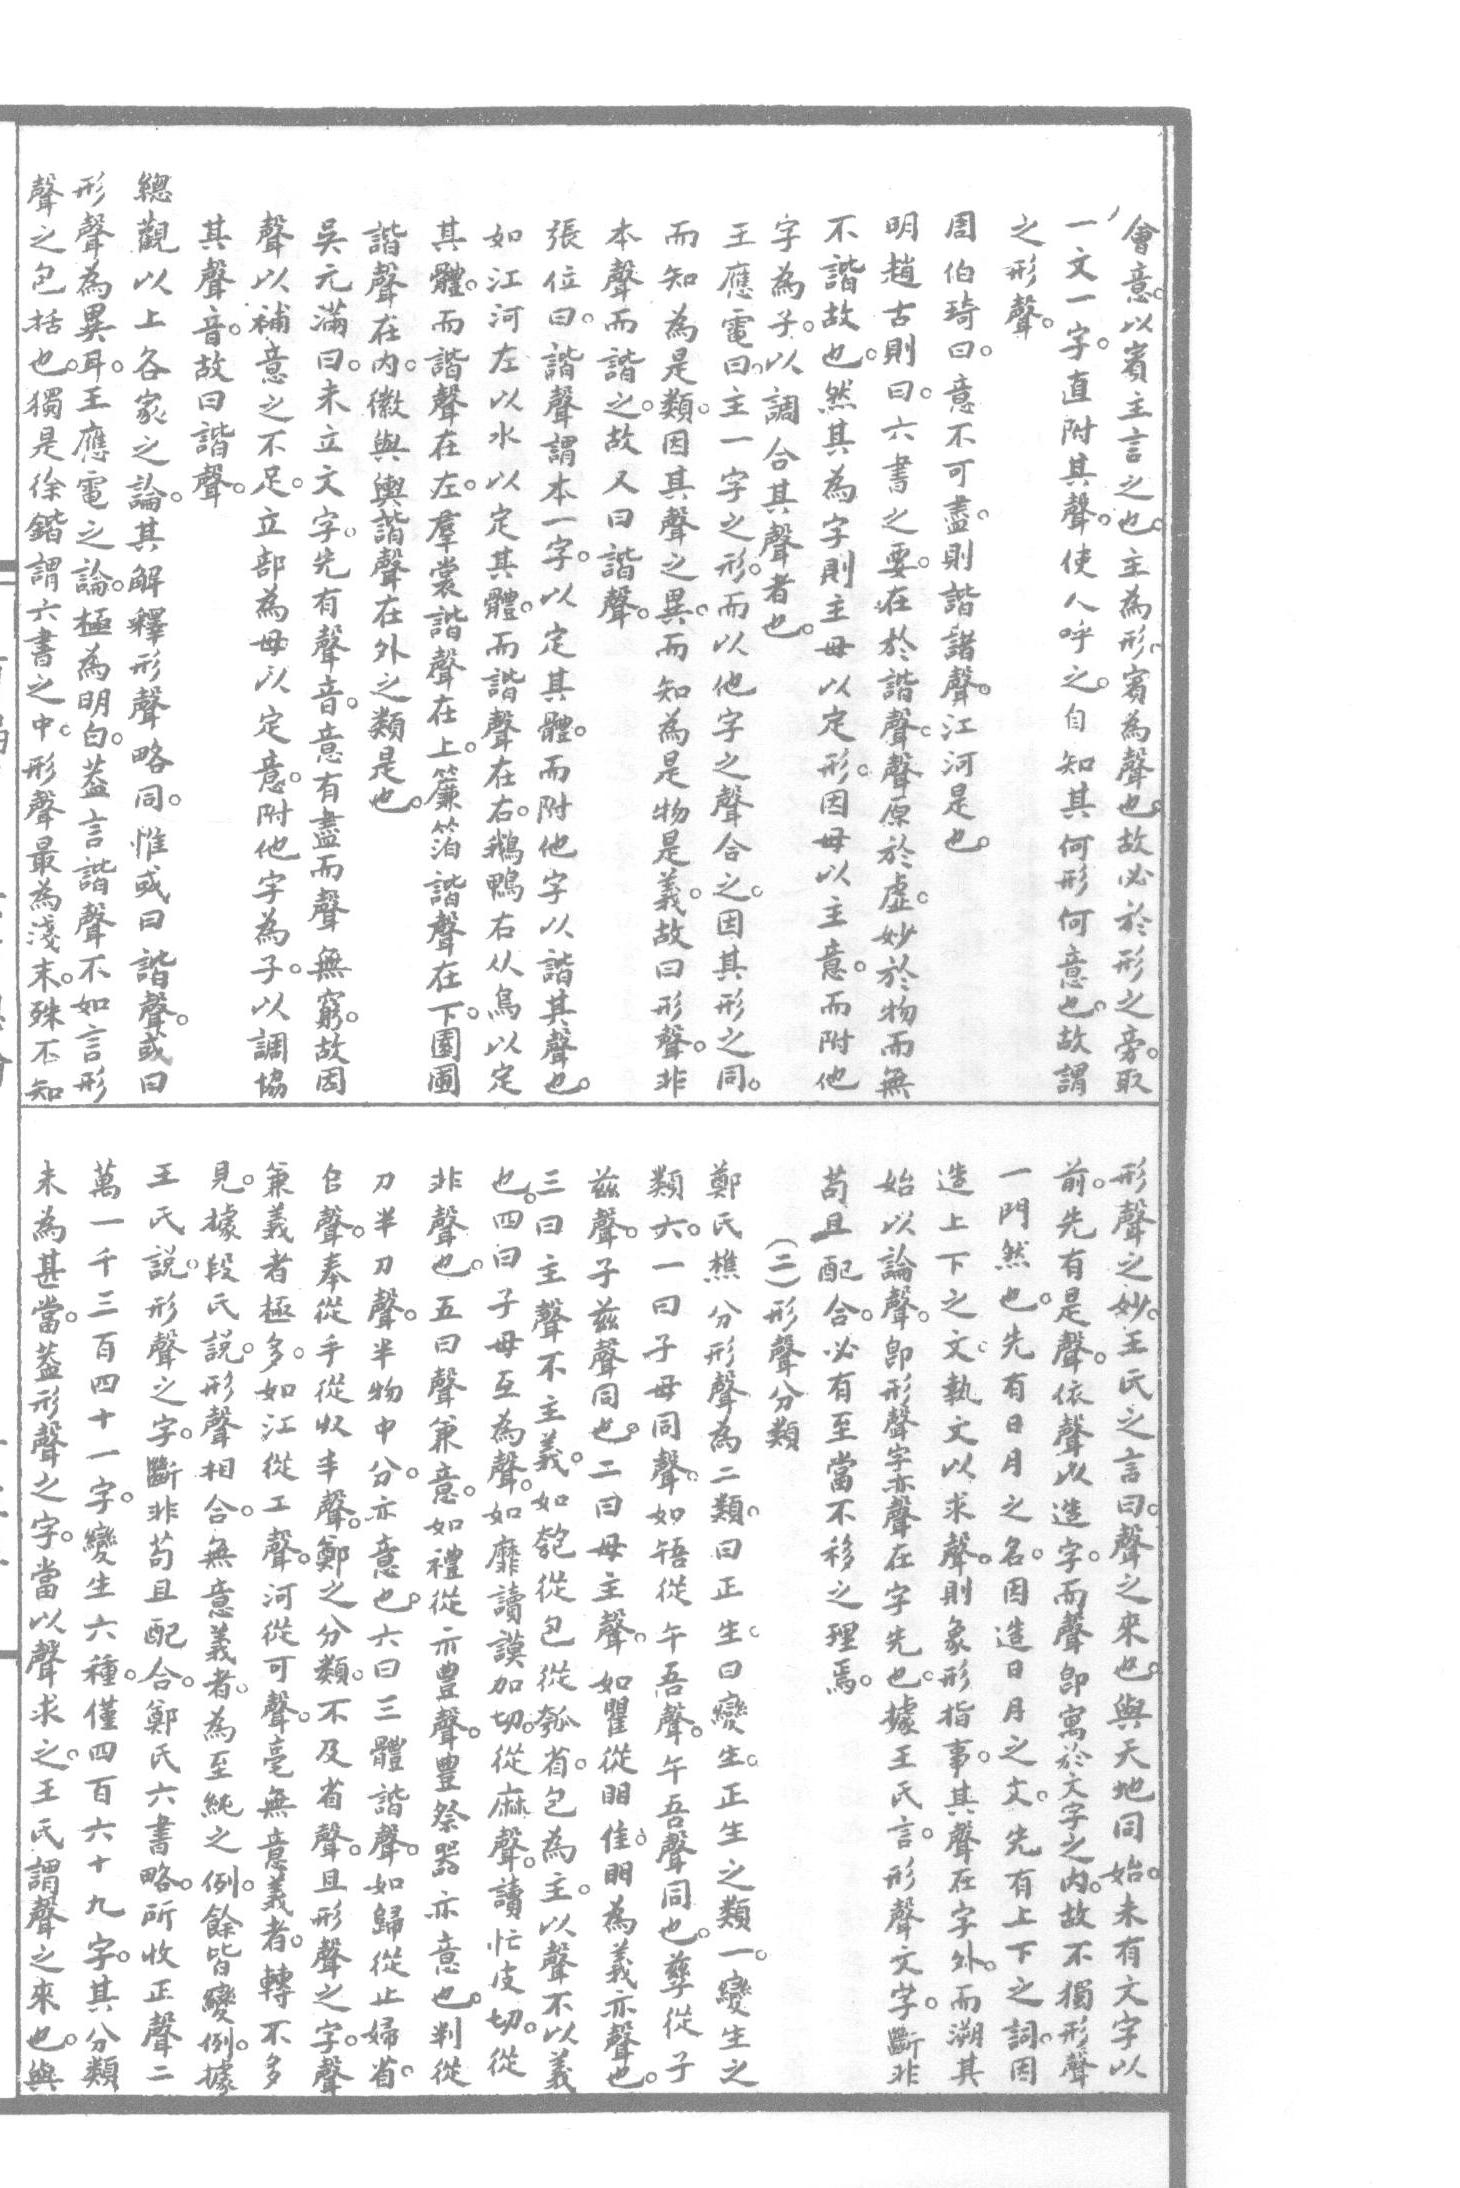 會意。以賓主言之也。主為形。賓為聲也。故必於形之旁。取
一文一字。直附其聲。使人呼之。自知其何形何意也。故謂
之形聲。
周伯琦曰。意不可盡。則諧諸聲。江河是也。
明趙古則曰。六書之要。在於諧聲。聲原於虛。妙於物而無
不諧故也。然其為字則主母以定形。因母以主意。而附他
字為子。以調合其聲者也。
王應電曰。主一字之形。而以他字之聲合之。因其形之同。
而知為是類。因其聲之異。而知為是物是義。故曰形聲。非
本聲而諧之。故又曰諧聲。
張位曰。諧聲謂本一字。以定其體。而附他字以諧其聲也。
如江河左以水以定其體。而諧聲在右。鵝鴨右从鳥以定
其體。而諧聲在左。羣裳諧聲在上。簾箔諧聲在下。園圃
諧聲在內。徽與輿諧聲在外之類是也。
吳元滿曰。未立文字。先有聲音。意有盡而聲無窮。故因
聲以補意之不足。立部為母以定意。附他字為子。以調協
其聲音。故曰諧聲。
總觀以上各家之論。其解釋形聲略同。惟或曰諧聲。或曰
形聲為異耳。王應電之論。極為明白。蓋言諧聲不如言形
聲之包括也。獨是徐鍇謂六書之中。形聲最為淺末。殊不知
形聲之妙。王氏之言曰。聲之來也。與天地同始。未有文字以
前。先有是聲。依聲以造字。而聲卽寓於文字之內。故不獨形聲
一門然也。先有日月之名。因造日月之文。先有上下之詞。因
造上下之文。執文以求聲。則象形指事。其聲在字外。而溯其
始以論聲。卽形聲字亦聲在字先也。據王氏言。形聲文字。斷非
苟且配合。必有至當不移之理焉。
(二)形聲分類
鄭氏樵分形聲為二類。曰正生。曰變生。正生之類一。變生之
類六。一曰子母同聲。如啎從午吾聲。午吾聲同也。孳從子
茲聲。子茲聲同也。二曰母主聲。如瞿從䀠隹。䀠為義亦聲也。
三曰主聲不主義。如匏從包從瓠省。包為主。以聲不以義
也。四曰子母互為聲。如靡讀謨加切。從麻聲。讀忙皮切。從
非聲也。五曰聲兼意。如禮從示豊聲。豊祭器亦意也。判從
刀半刀聲。半物中分亦意也。六曰三體諧聲。如歸從止婦省。
𠂤聲。奉從手從収丰聲。鄭之分類。不及省聲。且形聲之字。聲
兼義者極多。如江從工聲。河從可聲。毫無意義者。轉不多
見。據段氏說。形聲相合。無意義者。為至純之例。餘皆變例。據
王氏說。形聲之字。斷非苟且配合。鄭氏六書略。所收正聲二
萬一千三百四十一字。變生六種。僅四百六十九字。其分類
未為甚當。蓋形聲之字。當以聲求之。王氏謂聲之來也。與